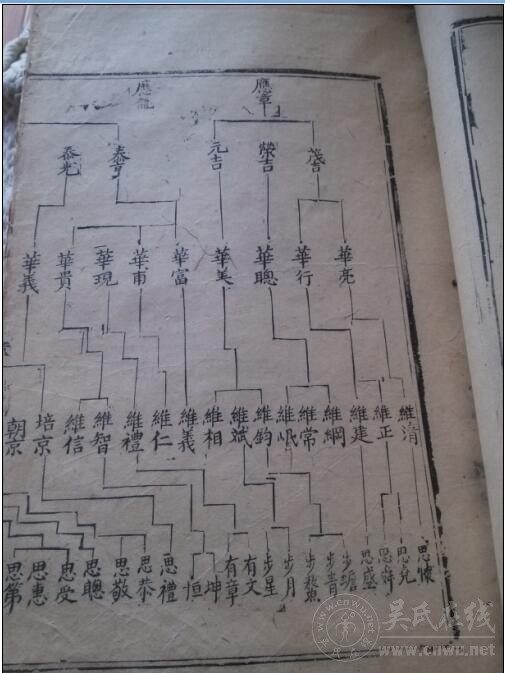 應章 應龍
茂吉 榮吉 元吉 泰亨 泰光
華亮 華行 華聰 華美 華富 華甫 華現 華貴 華義
維清 維正 維建 維綱 維常 維岷 維鈞 維斌 維相 維義 維仁 維禮 維智 維信 培京 朝京
思懷 思堯 思舜 思盛 步蟾 步青 步鰲 步月 步星 有文 有章 坤 恒 思禮 思恭 思敬 思聰 思受 思惠 思第
吳氏在线
www.cnwu.net